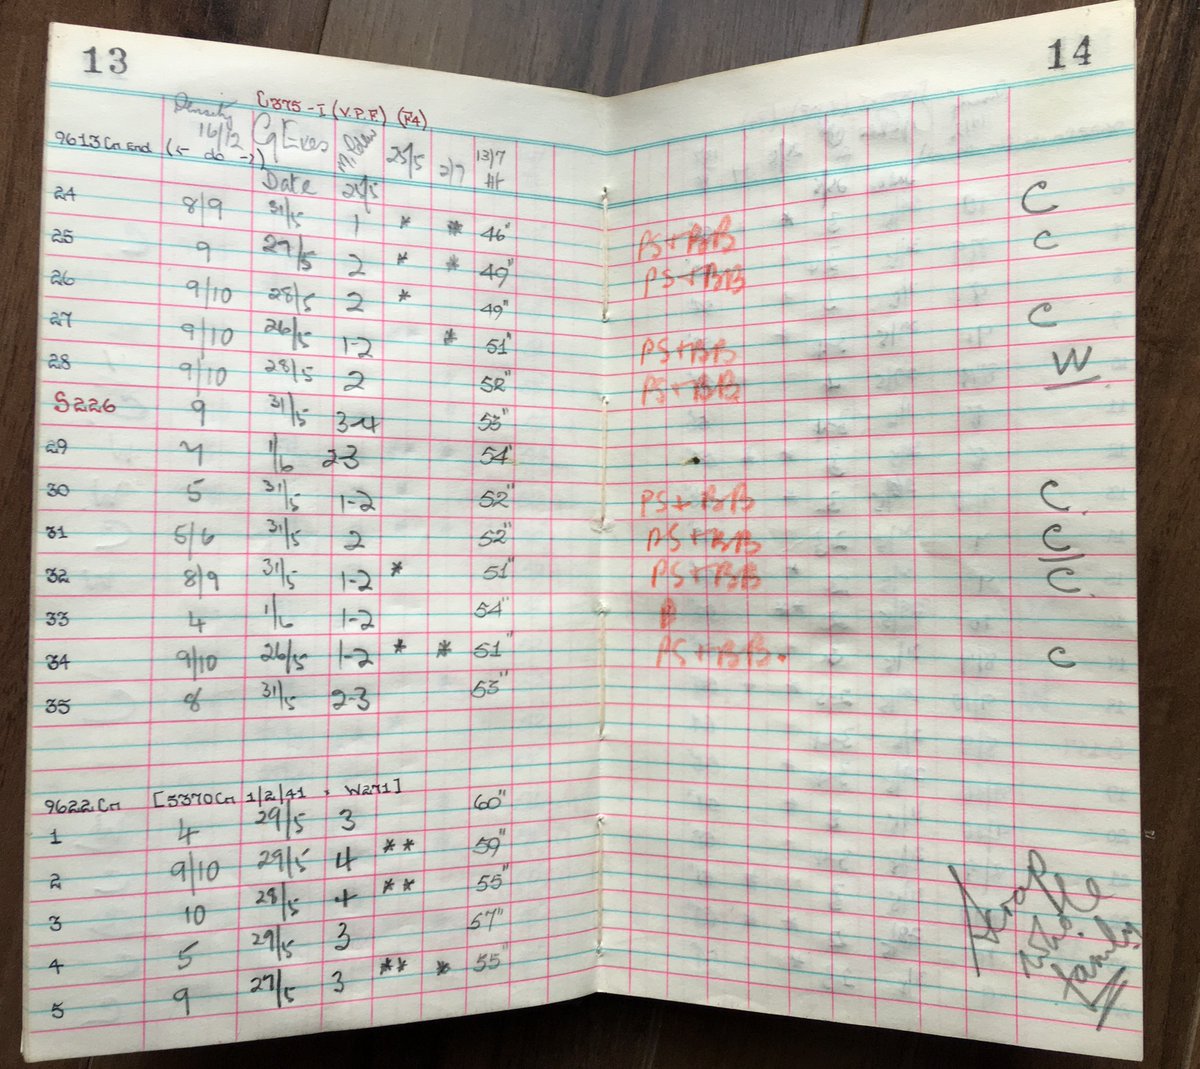 13
E375-I (V.P.F) (F4)
Density 16/12 G Eves M. Dew 25/5 2/7 13/7 Ht
9613 Cn End (5- do -7)
Date 25/5
24 8/9 31/5 1 * * 46"
25 9 29/5 2 * * 49"
26 9/10 28/5 2 * 49"
27 9/10 26/5 1-2 * 51"
28 9/10 28/5 2 52"
S226 9 31/5 3-4 53"
29 4 1/6 2-3 54"
30 5 31/5 1-2 52"
31 5/6 31/5 2 52"
32 8/9 31/5 1-2 * 51"
33 4 1/6 1-2 54"
34 9/10 26/5 1-2 * * 51"
35 8 31/5 2-3 53"
9622 Cn [5370 Cn 1/2/41 × W271]
1 4 29/5 3 60"
2 9/10 29/5 4 ** 59"
3 10 28/5 4 ** 55"
4 5 29/5 3 57"
5 9 27/5 3 ** * 55"
14
C
PS+BB C
PS+BB
C
PS+BB W
PS+BB
PS+BB C.
PS+BB C/
PS+BB C.
PS+BB. C
who.
family